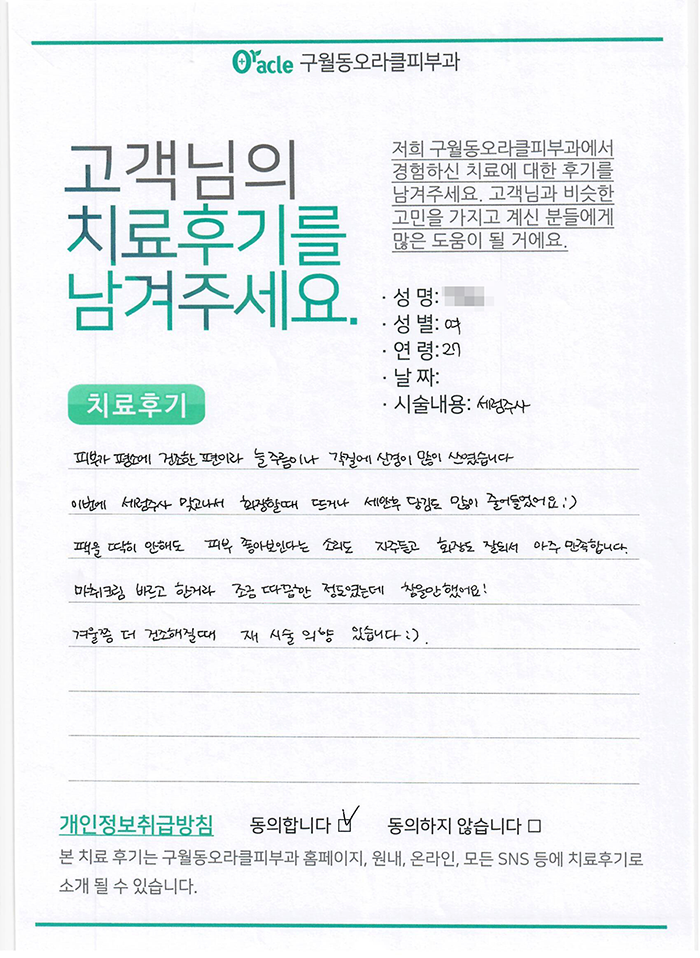 Oracle 구월동오라클피부과
고객님의
치료후기를
남겨주세요.
저희 구월동오라클피부과에서
경험하신 치료에 대한 후기를
남겨주세요. 고객님과 비슷한
고민을 가지고 계신 분들에게
많은 도움이 될 거에요.
· 성 명:
· 성 별: 여
· 연 령: 27
· 날 짜:
· 시술내용: 세럼주사
치료후기
피부가 평소에 건조한 편이라 늘 주름이나 각질에 신경이 많이 쓰였습니다
이번에 세럼주사 맞고나서 화장할때 뜨거나 세안후 당김도 많이 줄어들었어요 :)
팩을 딱히 안해도 피부 좋아보인다는 소리도 자주듣고 화장도 잘되서 아주 만족합니다.
마취크림 바르고 한거라 조금 따끔한 정도였는데 참을만했어요!
겨울쯤 더 건조해질때 재 시술 의향 있습니다 :).
개인정보취급방침 동의합니다 동의하지 않습니다
본 치료 후기는 구월동오라클피부과 홈페이지, 원내, 온라인, 모든 SNS 등에 치료후기로
소개 될 수 있습니다.